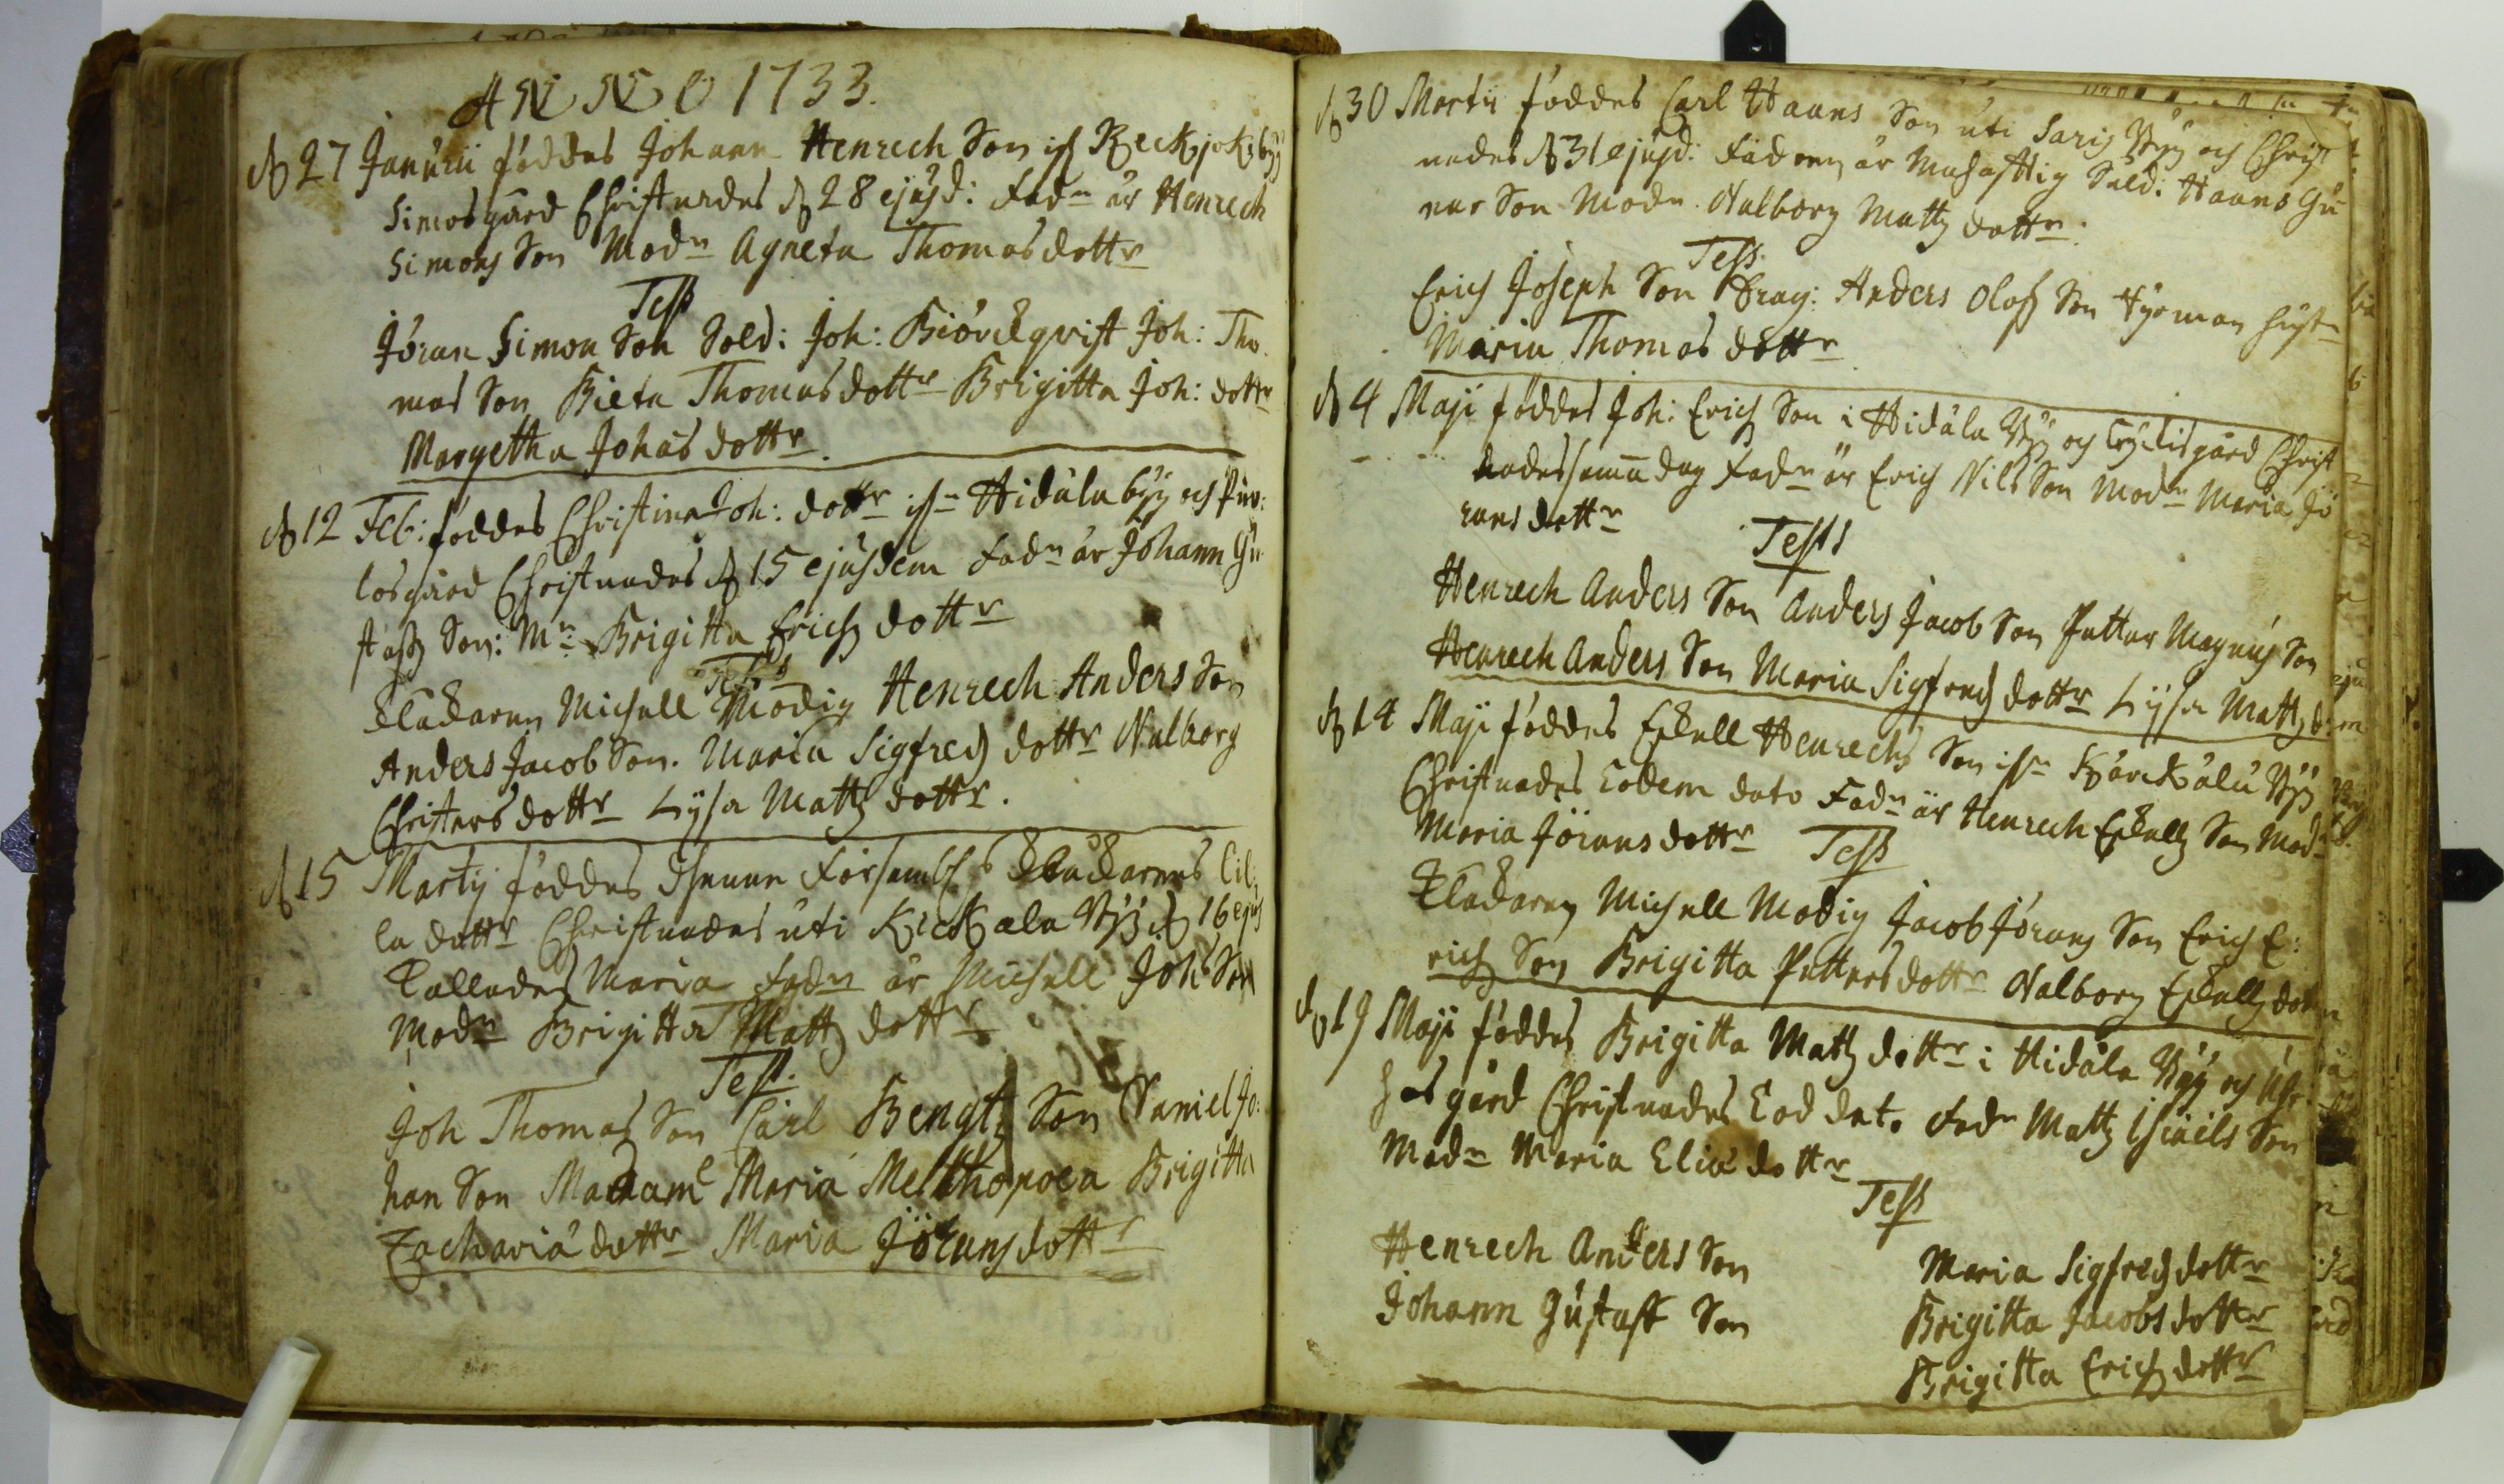 ANNO 1733.
D 27 Januarii föddes Johann Henrech Son if
Simosgård Christnades D 28 ejusd: Fadn är Henrech
Simons Son Modn Agneta Thomasdottr
Test
Jöran Simon Son Sold: Joh: Biörckqvist Joh: Tho
mas Son Bieta Thomasdottr Brigitta Joh: dottr
Margetha Johasdottr.
D 12 Feb: föddes Christina Joh: dottr Hidäla Byy och
losgård Christnades D 15 ejusdem Fadn är Johann Gu
staffz Son: Mn Brigitta Erichz dottr
Test
Klockaren Michell Modig Henrech Anders Son
Anders Jacob Son. Maria Sigfredz dottr Valborg
Christersdottr Lysa Mattz dottr.
D 15 Martij föddes Klockarens lil:
la dottr Christnades uti Kickala Byy D 16 ejus
Kallades Maria Fadn är Michell Johs Son
Modn Brigitta Mattz dottr
Test.
Joh Thomas Son Carl Bengtz Son Daniel Jo:
han Son Madame Maria Melkhopoea Brigitta
Zachariä dottr Maria Jöransdottr
D 30 Martii föddes Carl Hanns Son uti Saris Byy och Christ
nades D 31 ejusd: Fadren är Sold: Hanns Gu
nar Son Modn Valborg Mattz dottr.
Test.
Erich Joseph Son Drag: Anders Olofz Son Hyrman hust
Maria Thomasdottr
D 4 Maji föddes Joh: Erich Son i Hidäla Byy och gård Christ
nades samma dag Fadn är Erich Nils Son Modn Maria Jö
ransdottr
Test
Henrech Anders Son Anders Jacob Son Petter Magnus Son
Henrech Anders Son Maria Sigfredz dottr Lysa Mattz d:
D 14 Maji föddes Eskell Henrechs Son Byy
Christnades Eodem dato Fadn är Henrech Eskellz Son Modn
Maria Jöransdottr Test
Klockaren Michell Modig Jacob Jörans Son Erich E:
rich Son Brigitta Pettersdottr Valborg Eskellz dott
D 19 Maji föddes Brigitta Mattz dottr i Hidäla Byy och
gård Christnades Eod dato Fadn Mattz Israels Son
Modn Maria Eliä dottr
Test
Henrech Anders Son Maria Sigfredz dottr
Johann Gustaff Son Brigitta Jacobsdottr
Brigitta Erichz dottr